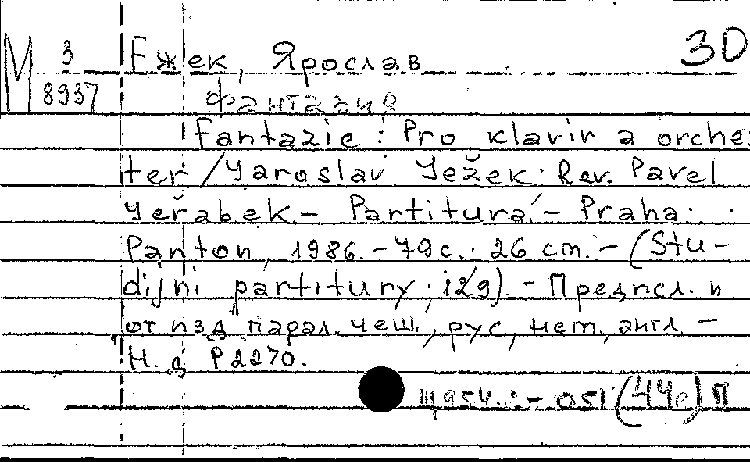 М 3 8937
Ежек, Ярослав 30
Фантазия
Fantazie : Pro klavir a orches
ter / Yaroslav Yežek. Rev. Pavel
Yeřabek. - Partitura. - Praha :
Panton, 1986. - 79 с. ; 26 cm. - (Stu-
dijni partitury ; 129). - Предисл. и
от изд. парал. чеш., рус, нем., англ. -
Н. д. Р 2270.
- 051 (44е) П